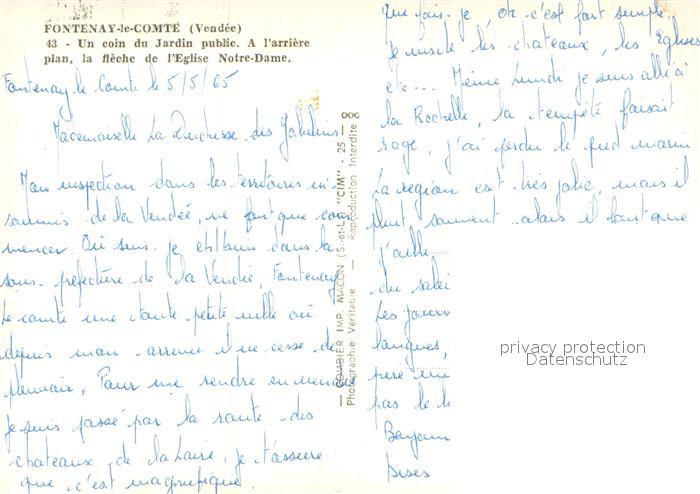 FONTENAY-le-COMTE (Vendée)
43 - Un coin du Jardin public. A l'arrière
plan, la flèche de l'Eglise Notre-Dame.
Fontenay le Comte le 5/5/65
Mademoiselle La Duchesse des
Mon inspection dans les territoires in-
soumis de la Vendée, ne font que com
mencer. Où suis-je et bien dans la
sous-préfecture de la Vendée, Fontenay
le comte une toute petite ville où
depuis mon arrivée il ne cesse de
pleuvoir, Pour me rendre en vendée
je suis passé par la route des
chateaux de la Loire, je t'assure
que c'est magnifique.
— COMBIER IMP. MACON (S.-et-L.) "CIM" - 25 — 000
Photographie Véritable - Reproduction Interdite
que fais-je, oh c'est fort simple,
je visite les chateaux, les Eglises
etc... Même Lundi je suis allé à
la Rochelle, la tempête faisait
rage, j'ai perdu le pied marin
La région est très jolie, mais il
pleut souvent alors il faut que
j'aille
du solei
Les journ
langues,
pas le
Bonjour
Bises
privacy protection
Datenschutz